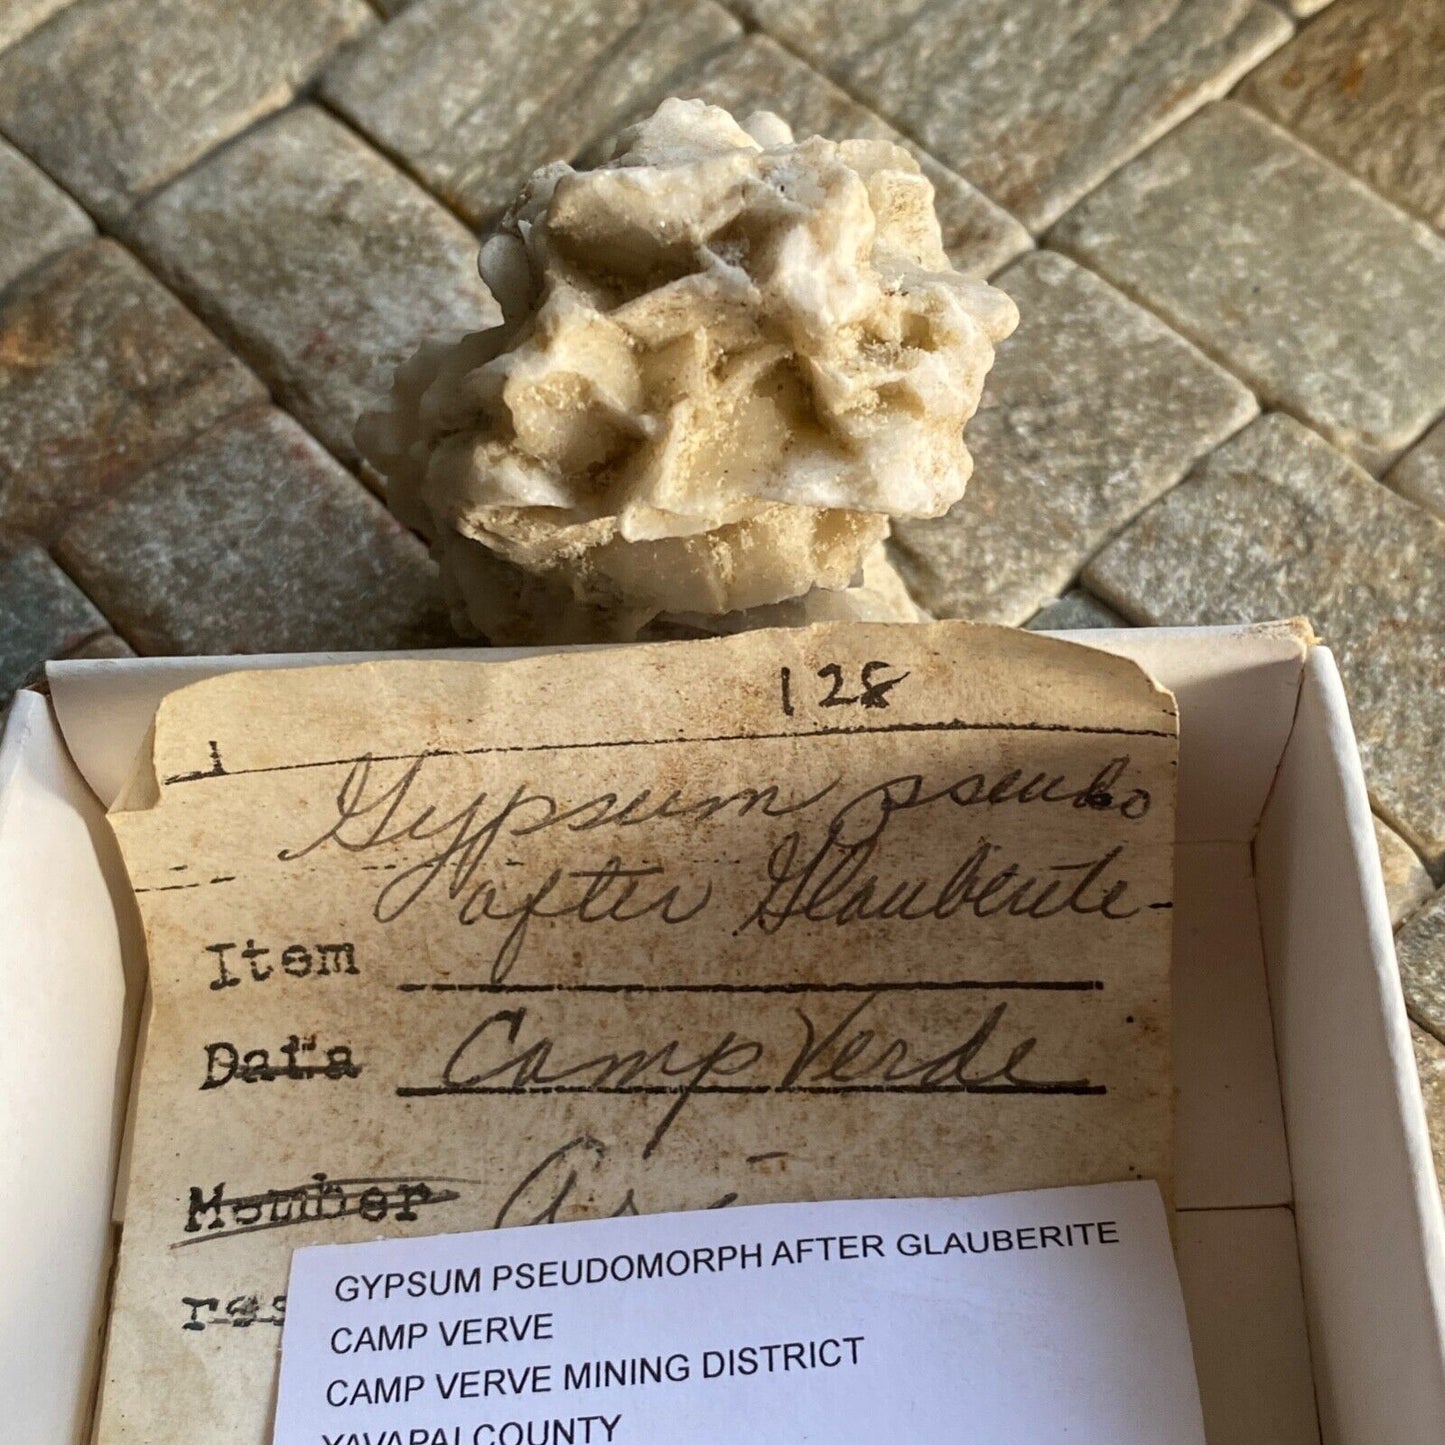 128
Gypsum pseudo
after Glauberite
Item
Data Camp Verde
Member
GYPSUM PSEUDOMORPH AFTER GLAUBERITE
CAMP VERVE
CAMP VERVE MINING DISTRICT
YAVAPAI COUNTY